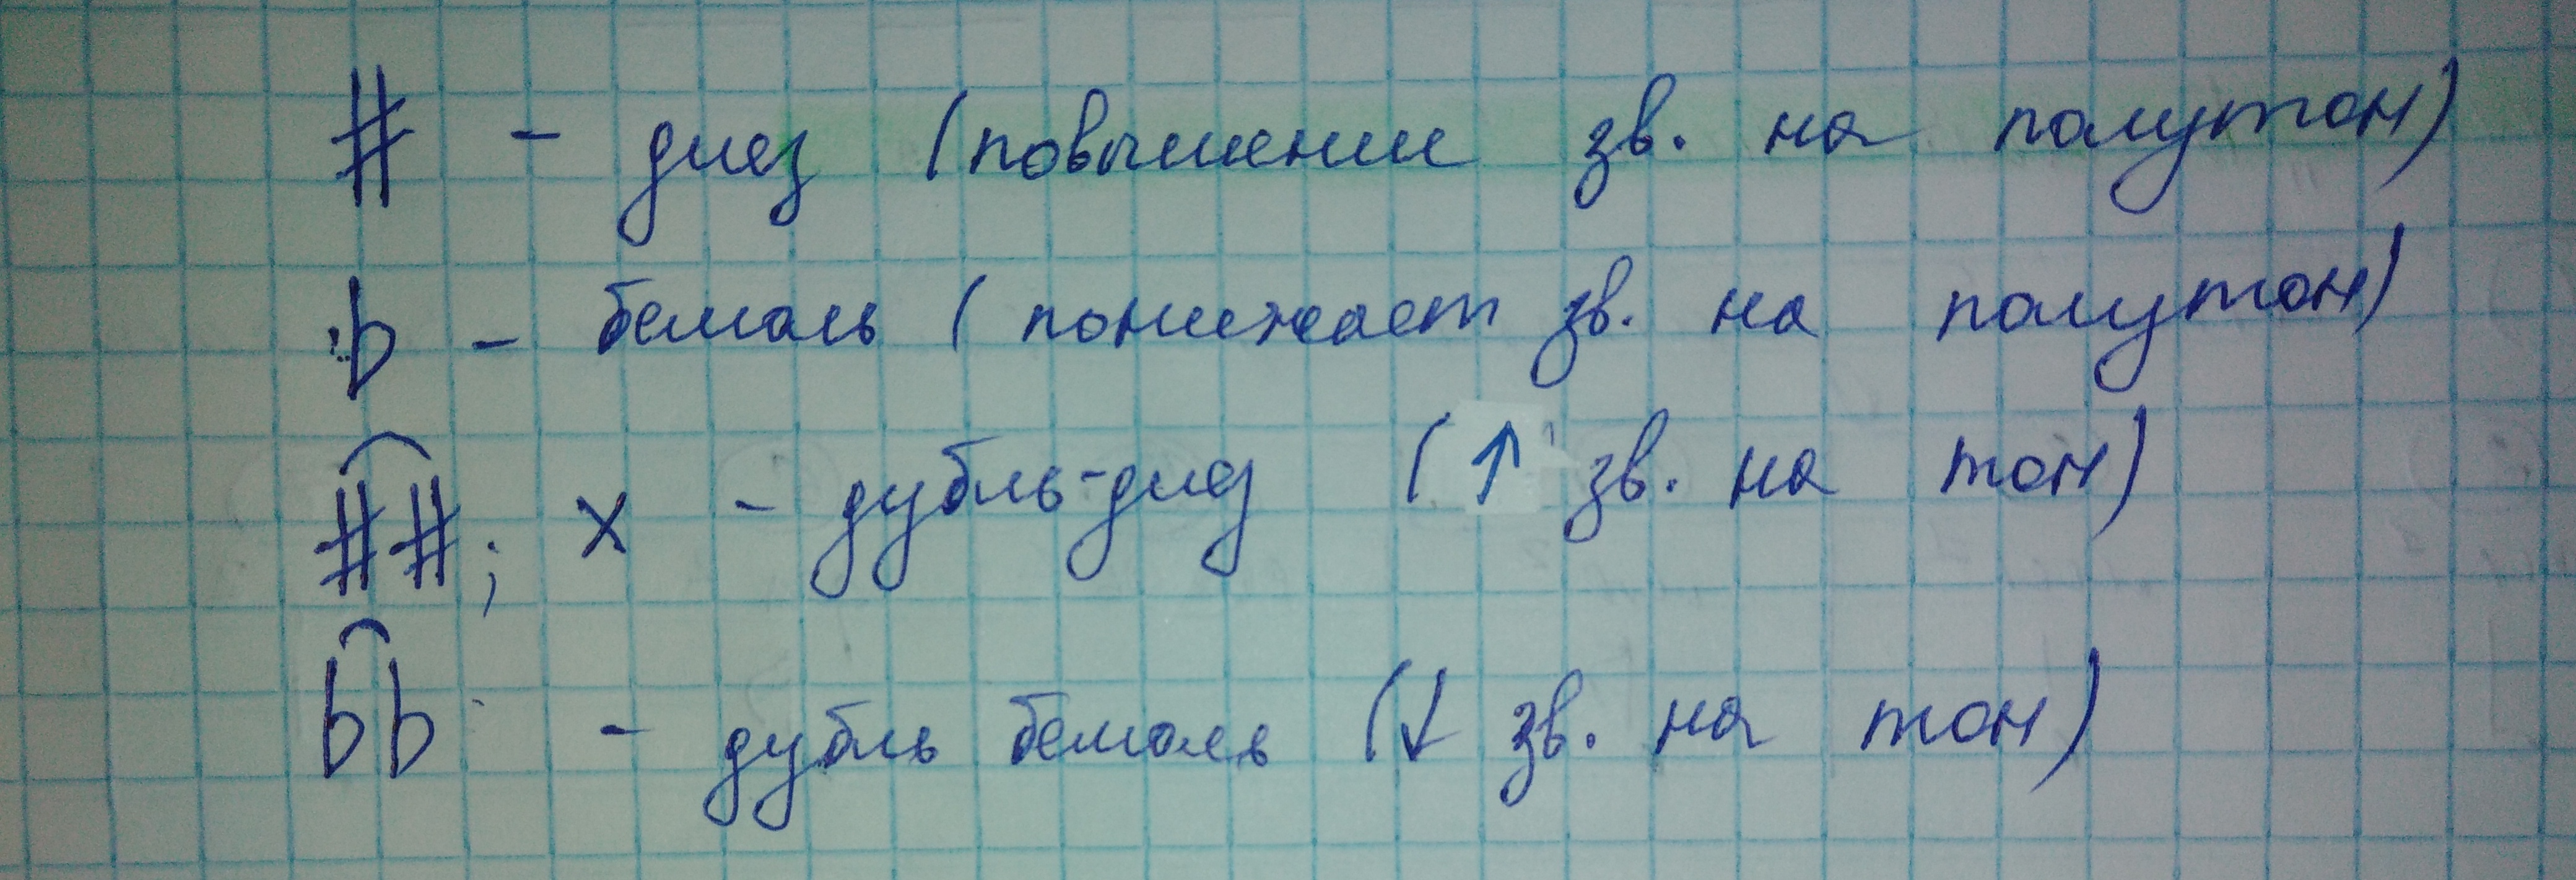 # - диез (повышении зв. на полутон)
b - бемоль (понижает зв. на полутон)
##; x - дубль-диез (↑ зв. на тон)
bb - дубль бемоль (↓ зв. на тон)